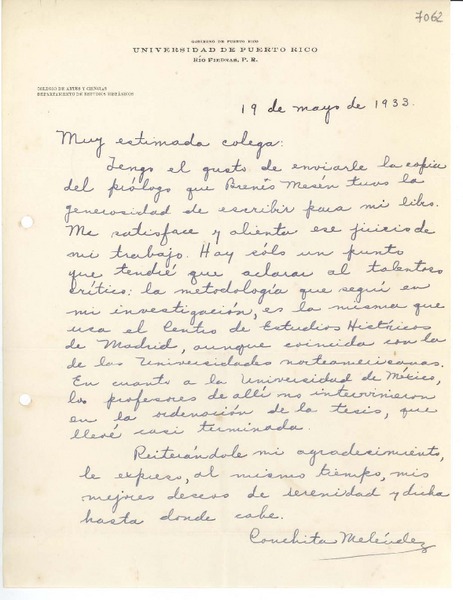 7062
GOBIERNO DE PUERTO RICO
UNIVERSIDAD DE PUERTO RICO
RÍO PIEDRAS, P. R.
COLEGIO DE ARTES Y CIENCIAS
DEPARTAMENTO DE ESTUDIOS HISPÁNICOS
19 de mayo de 1933.
Muy estimada colega:
Tengo el gusto de enviarle la copia
del prólogo que Brenes Mesén tuvo la
generosidad de escribir para mi libro.
Me satisface y alienta ese juicio de
mi trabajo. Hay sólo un punto
que tendré que aclarar al talentoso
crítico: la metodología que seguí en
mi investigación, es la misma que
usa el Centro de Estudios Históricos
de Madrid, aunque coincida con la
de las Universidades norteamericanas.
En cuanto a la Universidad de México,
los profesores de allá no intervinieron
en la ordenación de la tesis, que
llevé casi terminada.
Reiterándole mi agradecimiento,
le expreso, al mismo tiempo, mis
mejores deseos de serenidad y dicha
hasta donde cabe.
Conchita Meléndez